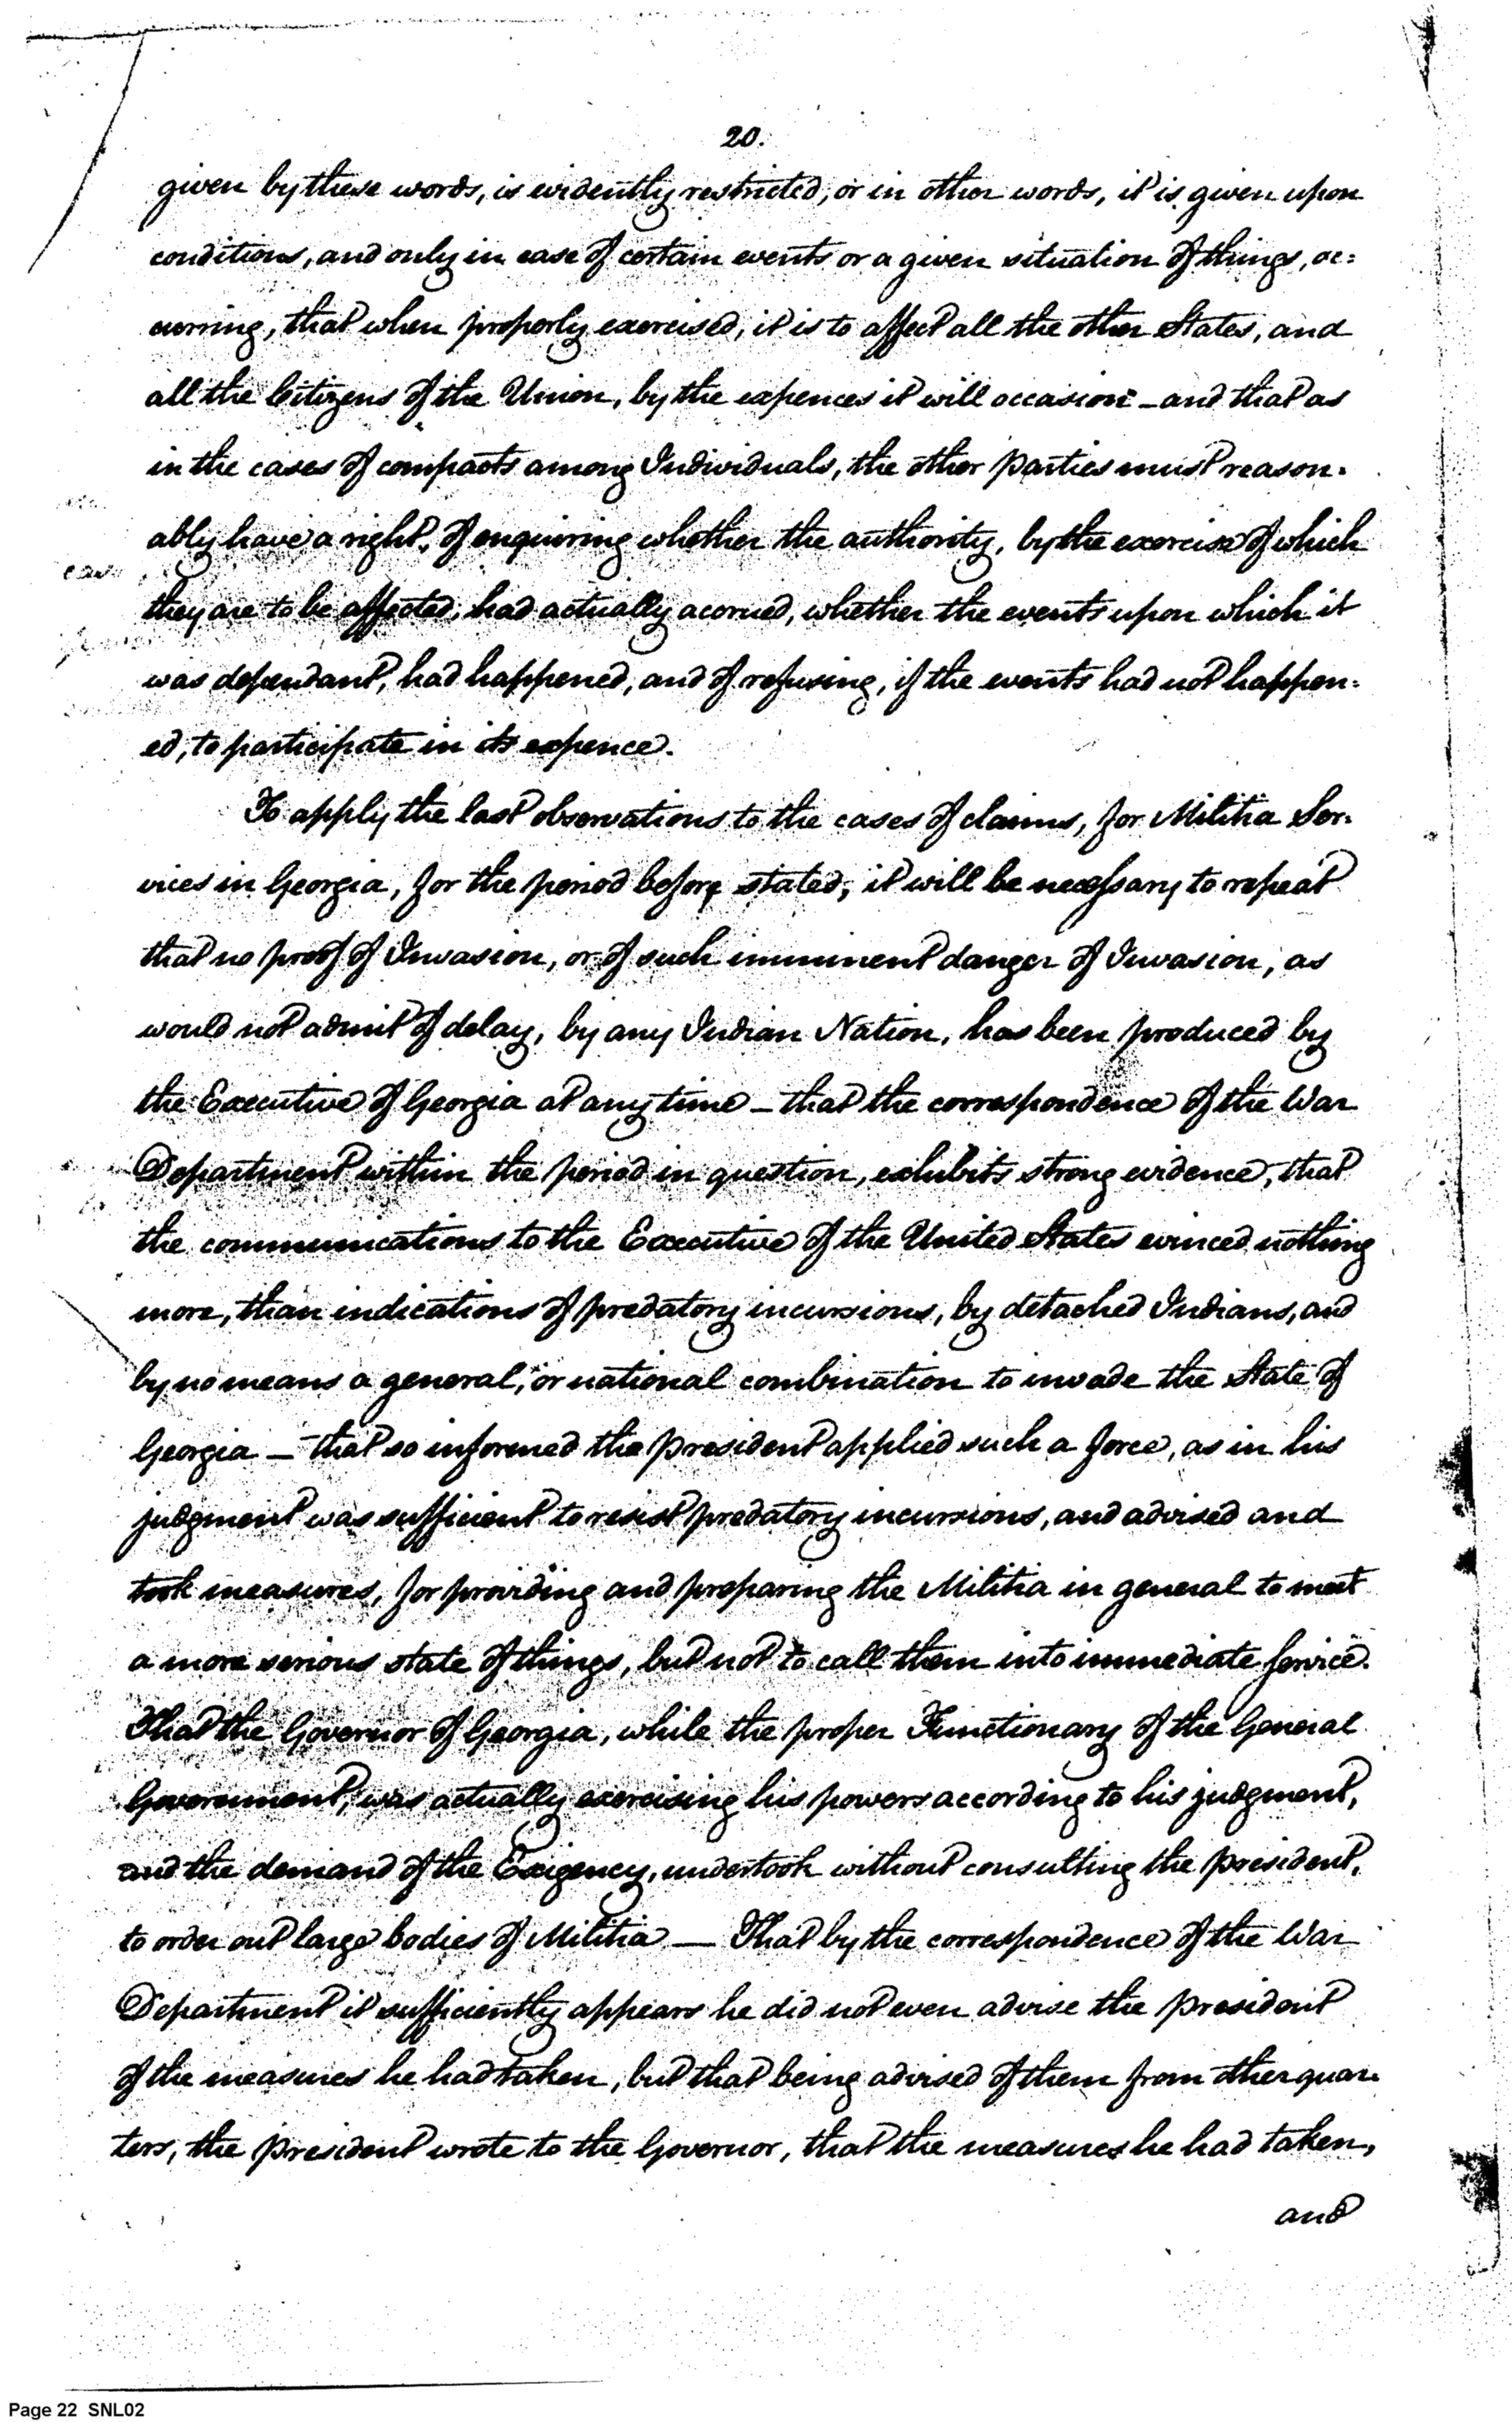 20.
given by these words, is evidently restricted, or in other words, it is given upon
conditions, and only in case of certain events or a given situation of things, oc=
curring, that when properly exercised, it is to affect all the other States, and
all the Citizens of the Union, by the expences it will occasion - and that as
in the cases of compacts among Individuals, the other parties must reason=
ably have a right, of enquiring whether the authority, by the exercise of which
they are to be affected, had actually accrued, whether the events upon which it
was dependant, had happened, and of refusing, if the events had not happen=
ed, to participate in its expence.
To apply the last observations to the cases of claims, for Militia Ser=
vices in Georgia, for the period before stated, it will be necessary to repeat
that no proof of Invasion, or of such imminent danger of Invasion, as
would not admit of delay, by any Indian Nation, has been produced by
the Executive of Georgia at any time - that the correspondence of the War
Department within the period in question, exhibits strong evidence, that
the communications to the Executive of the United States evinced nothing
more, than indications of predatory incursions, by detached Indians, and
by no means a general, or national combination to invade the State of
Georgia - that so informed the president applied such a force, as in his
judgment was sufficient to resist predatory incursions, and advised and
took measures, for providing and preparing the Militia in general to meet
a more serious state of things, but not to call them into immediate service.
That the Governor of Georgia, while the proper Functionary of the General
Government, was actually exercising his powers according to his judgment,
and the demand of the Exigency, undertook without consulting the president,
to order out large bodies of Militia — That by the correspondence of the War
Department it sufficiently appears he did not even advise the president
of the measures he had taken, but that being advised of them from other quar=
ters, the president wrote to the Governor, that the measures he had taken,
and
Page 22 SNL02